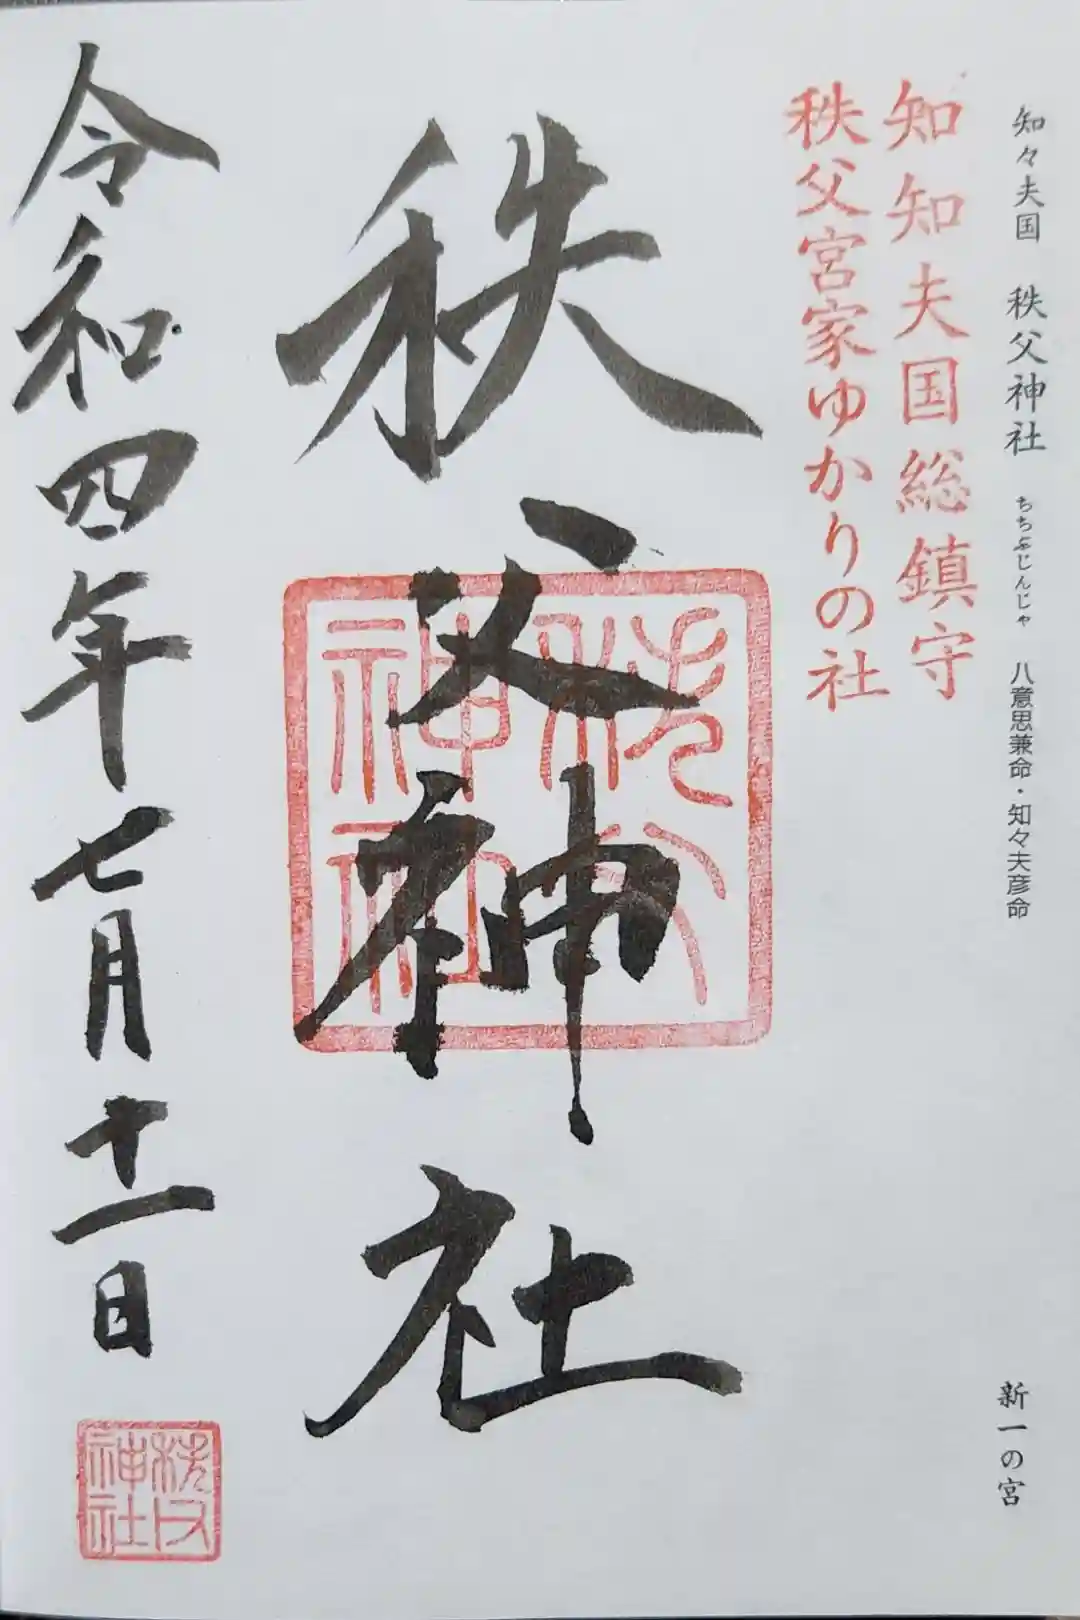 知々夫国 秩父神社 ちちぶじんじゃ 八意思兼命・知々夫彦命
新一の宮
知知夫国総鎮守
秩父宮家ゆかりの社
秩父神社
秩父神社
令和四年七月十一日
秩父神社